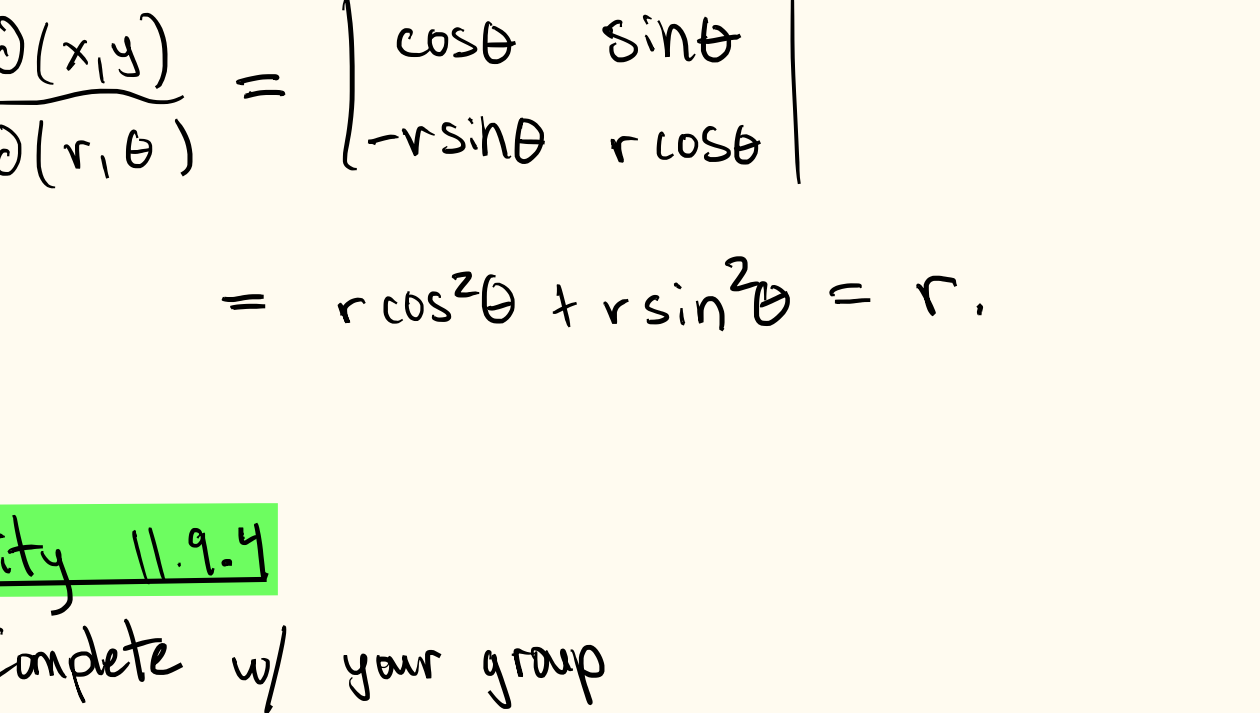 ∂(x,y) = | cosθ sinθ |
∂(r,θ) | -rsinθ r cosθ |
= r cos²θ + r sin²θ = r.
ity 11.9.4
Complete w/ your group